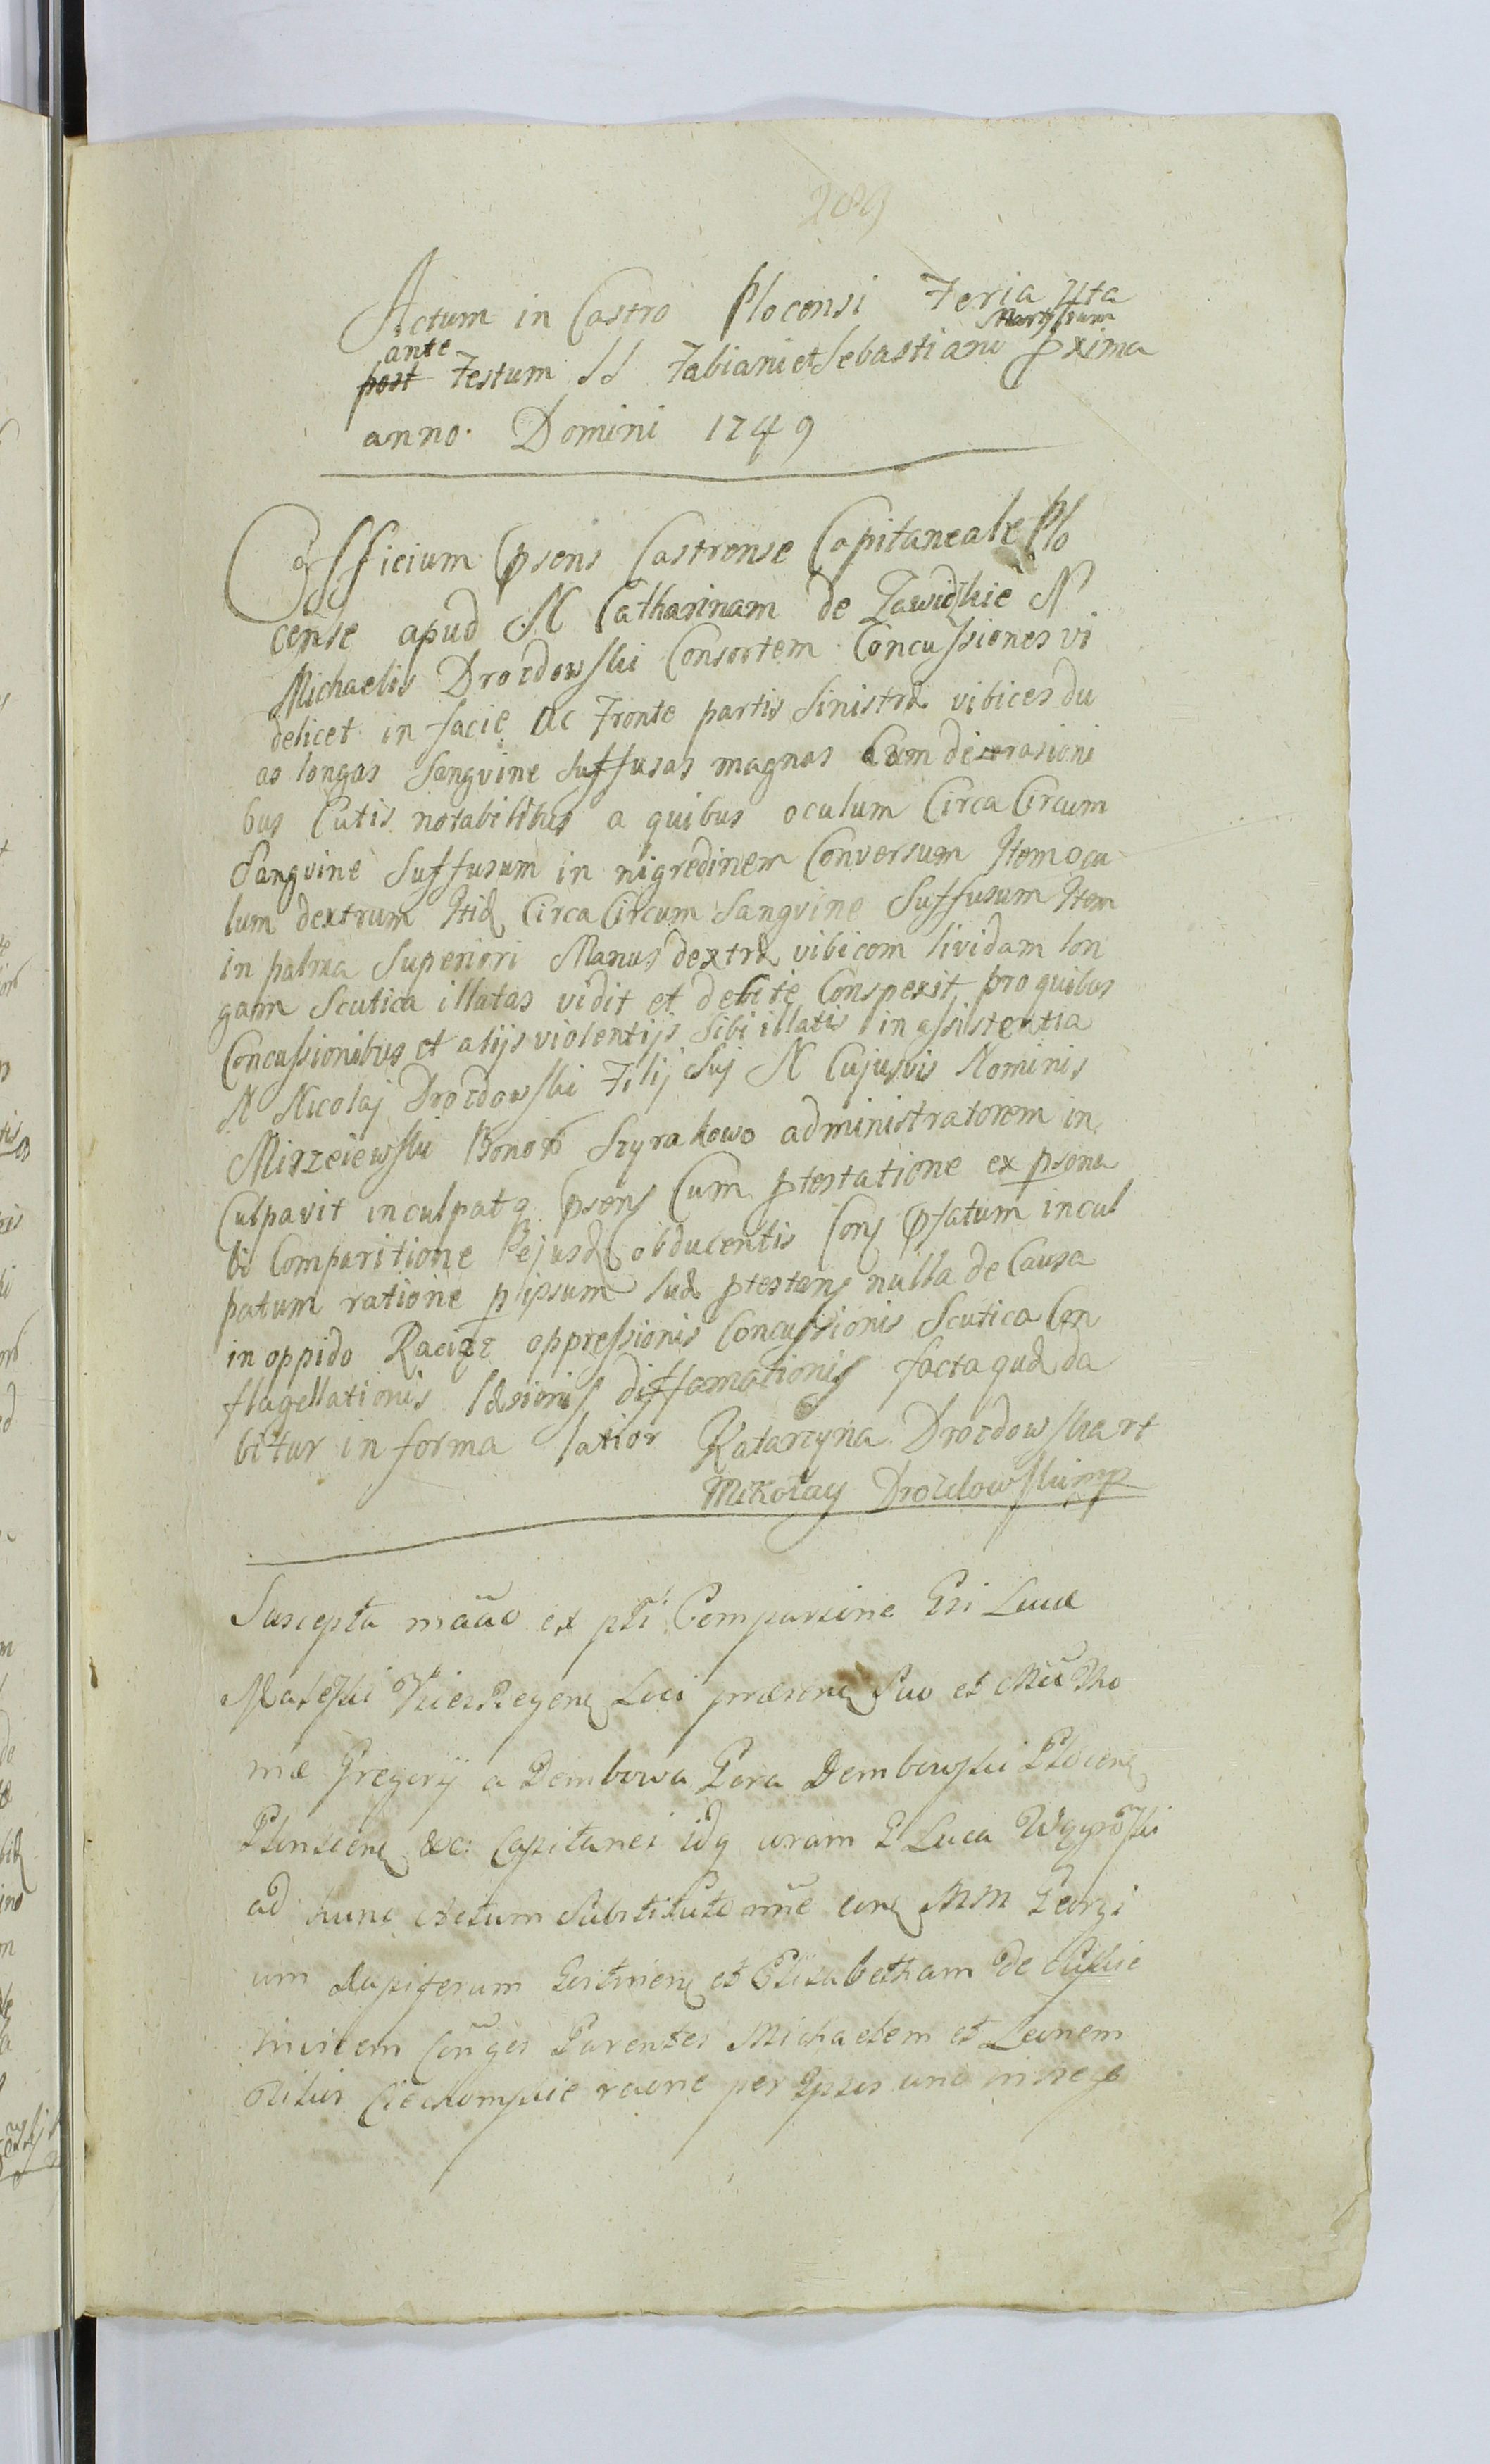 289
Actum in Castro Plocensi Feria 4ta
ante Martyrum
post Festum SS Fabiani et Sebastiani pxima
anno Domini 1749
Officium psens Castrense Capitaneale Plo
cense apud N Catharinam de Zawidzkie N
Michaelis Drozdowski Consortem Concussiones vi
delicet in facie ac Fronte partis Sinistræ vibices du
as longas Sangvine Suffusas magnas Cum dezerasioni
bus Cutis notabilibus a quibus oculum Circa Circum
Sangvine Suffusum in nigredinem Conversum Item ocu
lum dextrum Itid Circa Circum Sangvine Suffusum Item
in palma Superiori Manus dextræ vibicem lividam lon
gam Scutica illatas vidit et debite Conspexit pro quibus
Concussionibus et alijs violentijs Sibi illatis in assistentia
N Nicolaj Drozdowski Filij Suj N Cujusvis Nominis
Mirzeiewski Bonor Szyrakowo administratorem in
Culpavit inculpatq psens Cum ptestatione ex psona
li Comparitione Eejusd obducentis Conj psatum incul
patum ratione p ipsum sud ptestans nulla de Causa
in oppido Raciąż oppressionis Concussionis Scutica Con
flagellationis læsionis diffamationis facta quæ da
bitur in forma latior Katarzyna Drozdowska rt
Mikołay Drozdowski mp
Suscepta maao ex pli Comparine Gsi Lucæ
VicesRegens Loci præsens Suo et Mci Tho
mæ Gregorij a Dembowa Gora Dembowski Plocens
Plonscens &c: Capitanei idq coram G Luca
ad hunc Actum Substituto nne cons MM Georgi
um Dapiferum et Elisabetham de
invicem Conges Parentes Michaelem et Leonem
Filios Ciechomskie raone per Ipsos uno